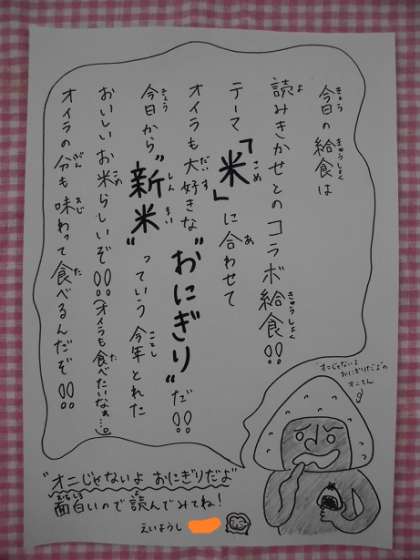 今日の給食は
読みきかせとのコラボ給食!!
テーマ「米」に合わせて
オイラも大好きな"おにぎり"だ!!
今日から"新米"っていう今年とれた
おいしいお米らしいぞ!!(オイラも食べたいなぁ…。)
オイラの分も味わって食べるんだぞ!!
"オニじゃないよ
おにぎりだよ"の
オニさん
"オニじゃないよ おにぎりだよ"
面白いので読んでみてね!
えいようし